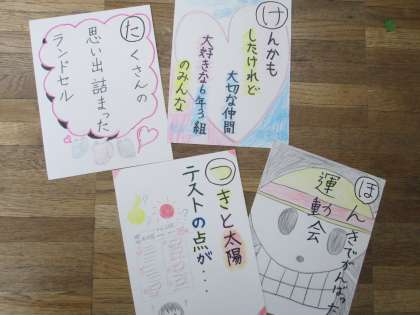 たくさんの
思い出詰まった
ランドセル
けんかも
したけれど
大切な仲間
大好きな6年3組
のみんな
つきと太陽
テストの点が...
ほんきでがんばった
運動会